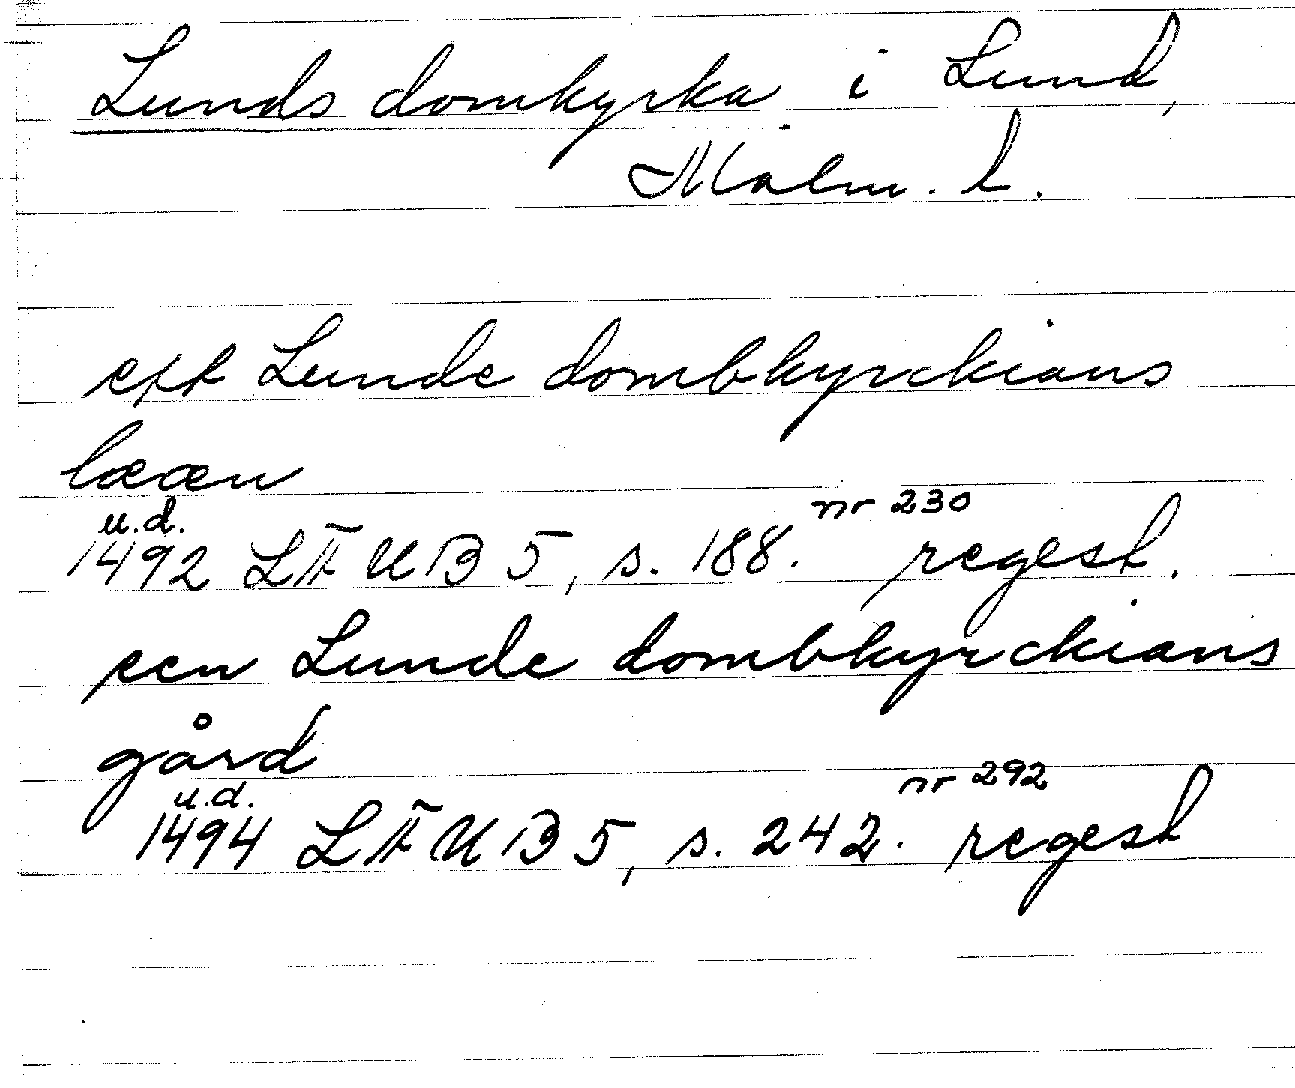 Lunds domkyrka i Lund,
Malm. l.
ett Lunde dombkyrckians
lææn
u.d. nr 230
1492 LÄUB 5, s. 188. regest.
een Lunde dombkyrckians
gård
u.d. nr 292
1494 LÄUB 5, s. 242. regest